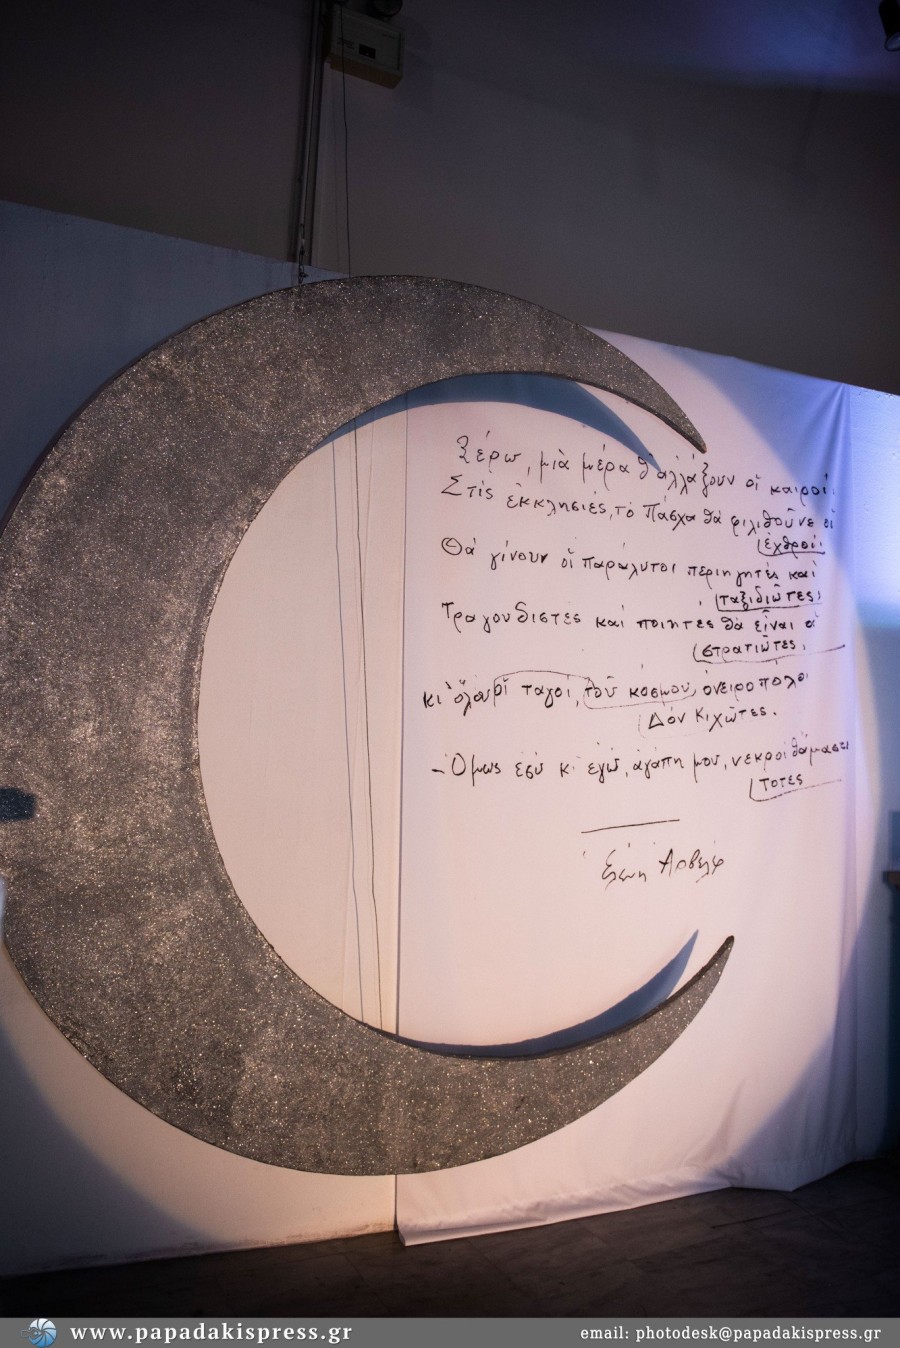 Ξέρω, μιὰ μέρα θ' ἀλλάξουν οἱ καιροί.
Στὶς ἐκκλησιές, τὸ Πάσχα θὰ φιληθοῦνε οἱ
ἐχθροί.
Θὰ γίνουν οἱ παράλυτοι περιηγητὲς καὶ
ταξιδιῶτες,
Τραγουδιστὲς καὶ ποιητὲς θὰ εἶναι οἱ
στρατιῶτες.
κι' οἱ ταγοί, τοῦ κόσμου, ὀνειροπόλοι
Δὸν Κιχῶτες.
- Ὅμως ἐσὺ κι ἐγώ, ἀγάπη μου, νεκροὶ θἄμαστε
τότες
Ἑλένη Ἀρβελέρ
www.papadakispress.gr
email: photodesk@papadakispress.gr